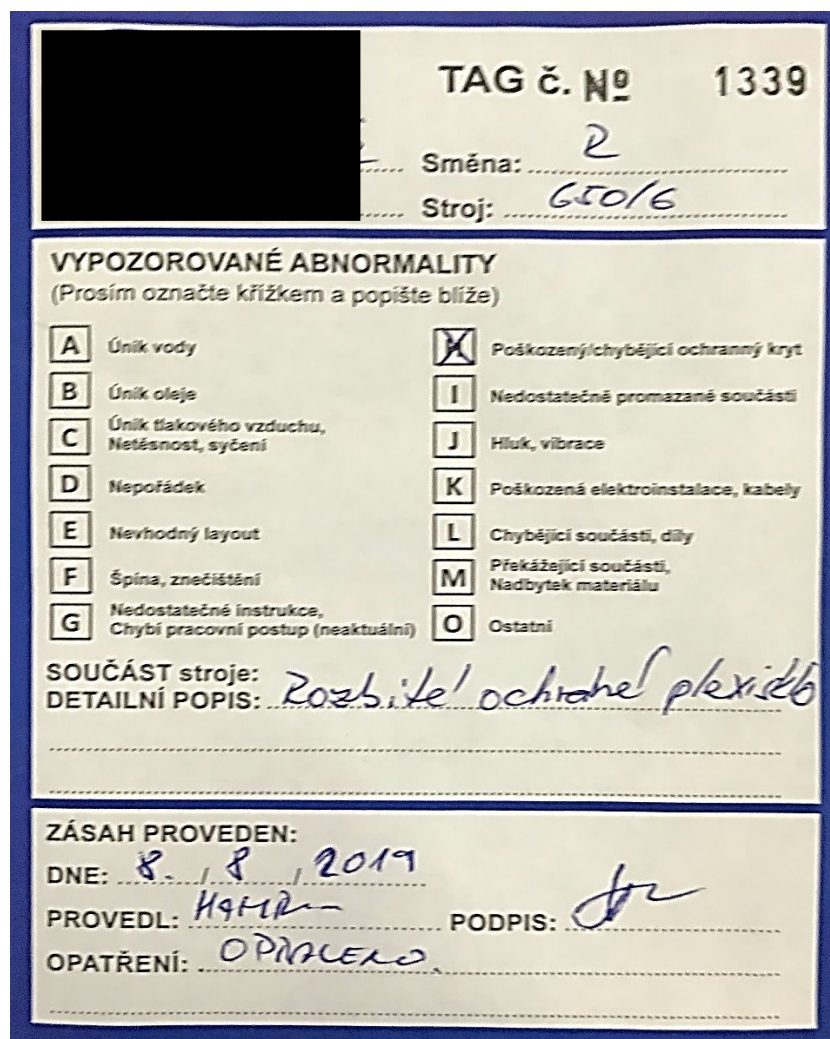 TAG č. Nº 1339
Směna: R
Stroj: 650/6
VYPOZOROVANÉ ABNORMALITY
(Prosím označte křížkem a popište blíže)
A Únik vody
B Únik oleje
C Únik tlakového vzduchu,
Netěsnost, syčení
D Nepořádek
E Nevhodný layout
F Špína, znečištění
G Nedostatečné instrukce,
Chybí pracovní postup (neaktuální)
H Poškozený/chybějící ochranný kryt
I Nedostatečně promazané součásti
J Hluk, vibrace
K Poškozená elektroinstalace, kabely
L Chybějící součásti, díly
M Překážející součásti,
Nadbytek materiálu
O Ostatní
SOUČÁST stroje:
DETAILNÍ POPIS: Rozbité ochrané plexisklo
ZÁSAH PROVEDEN:
DNE: 8. / 8 / 2019
PROVEDL:
PODPIS:
OPATŘENÍ: OPRAVENO.